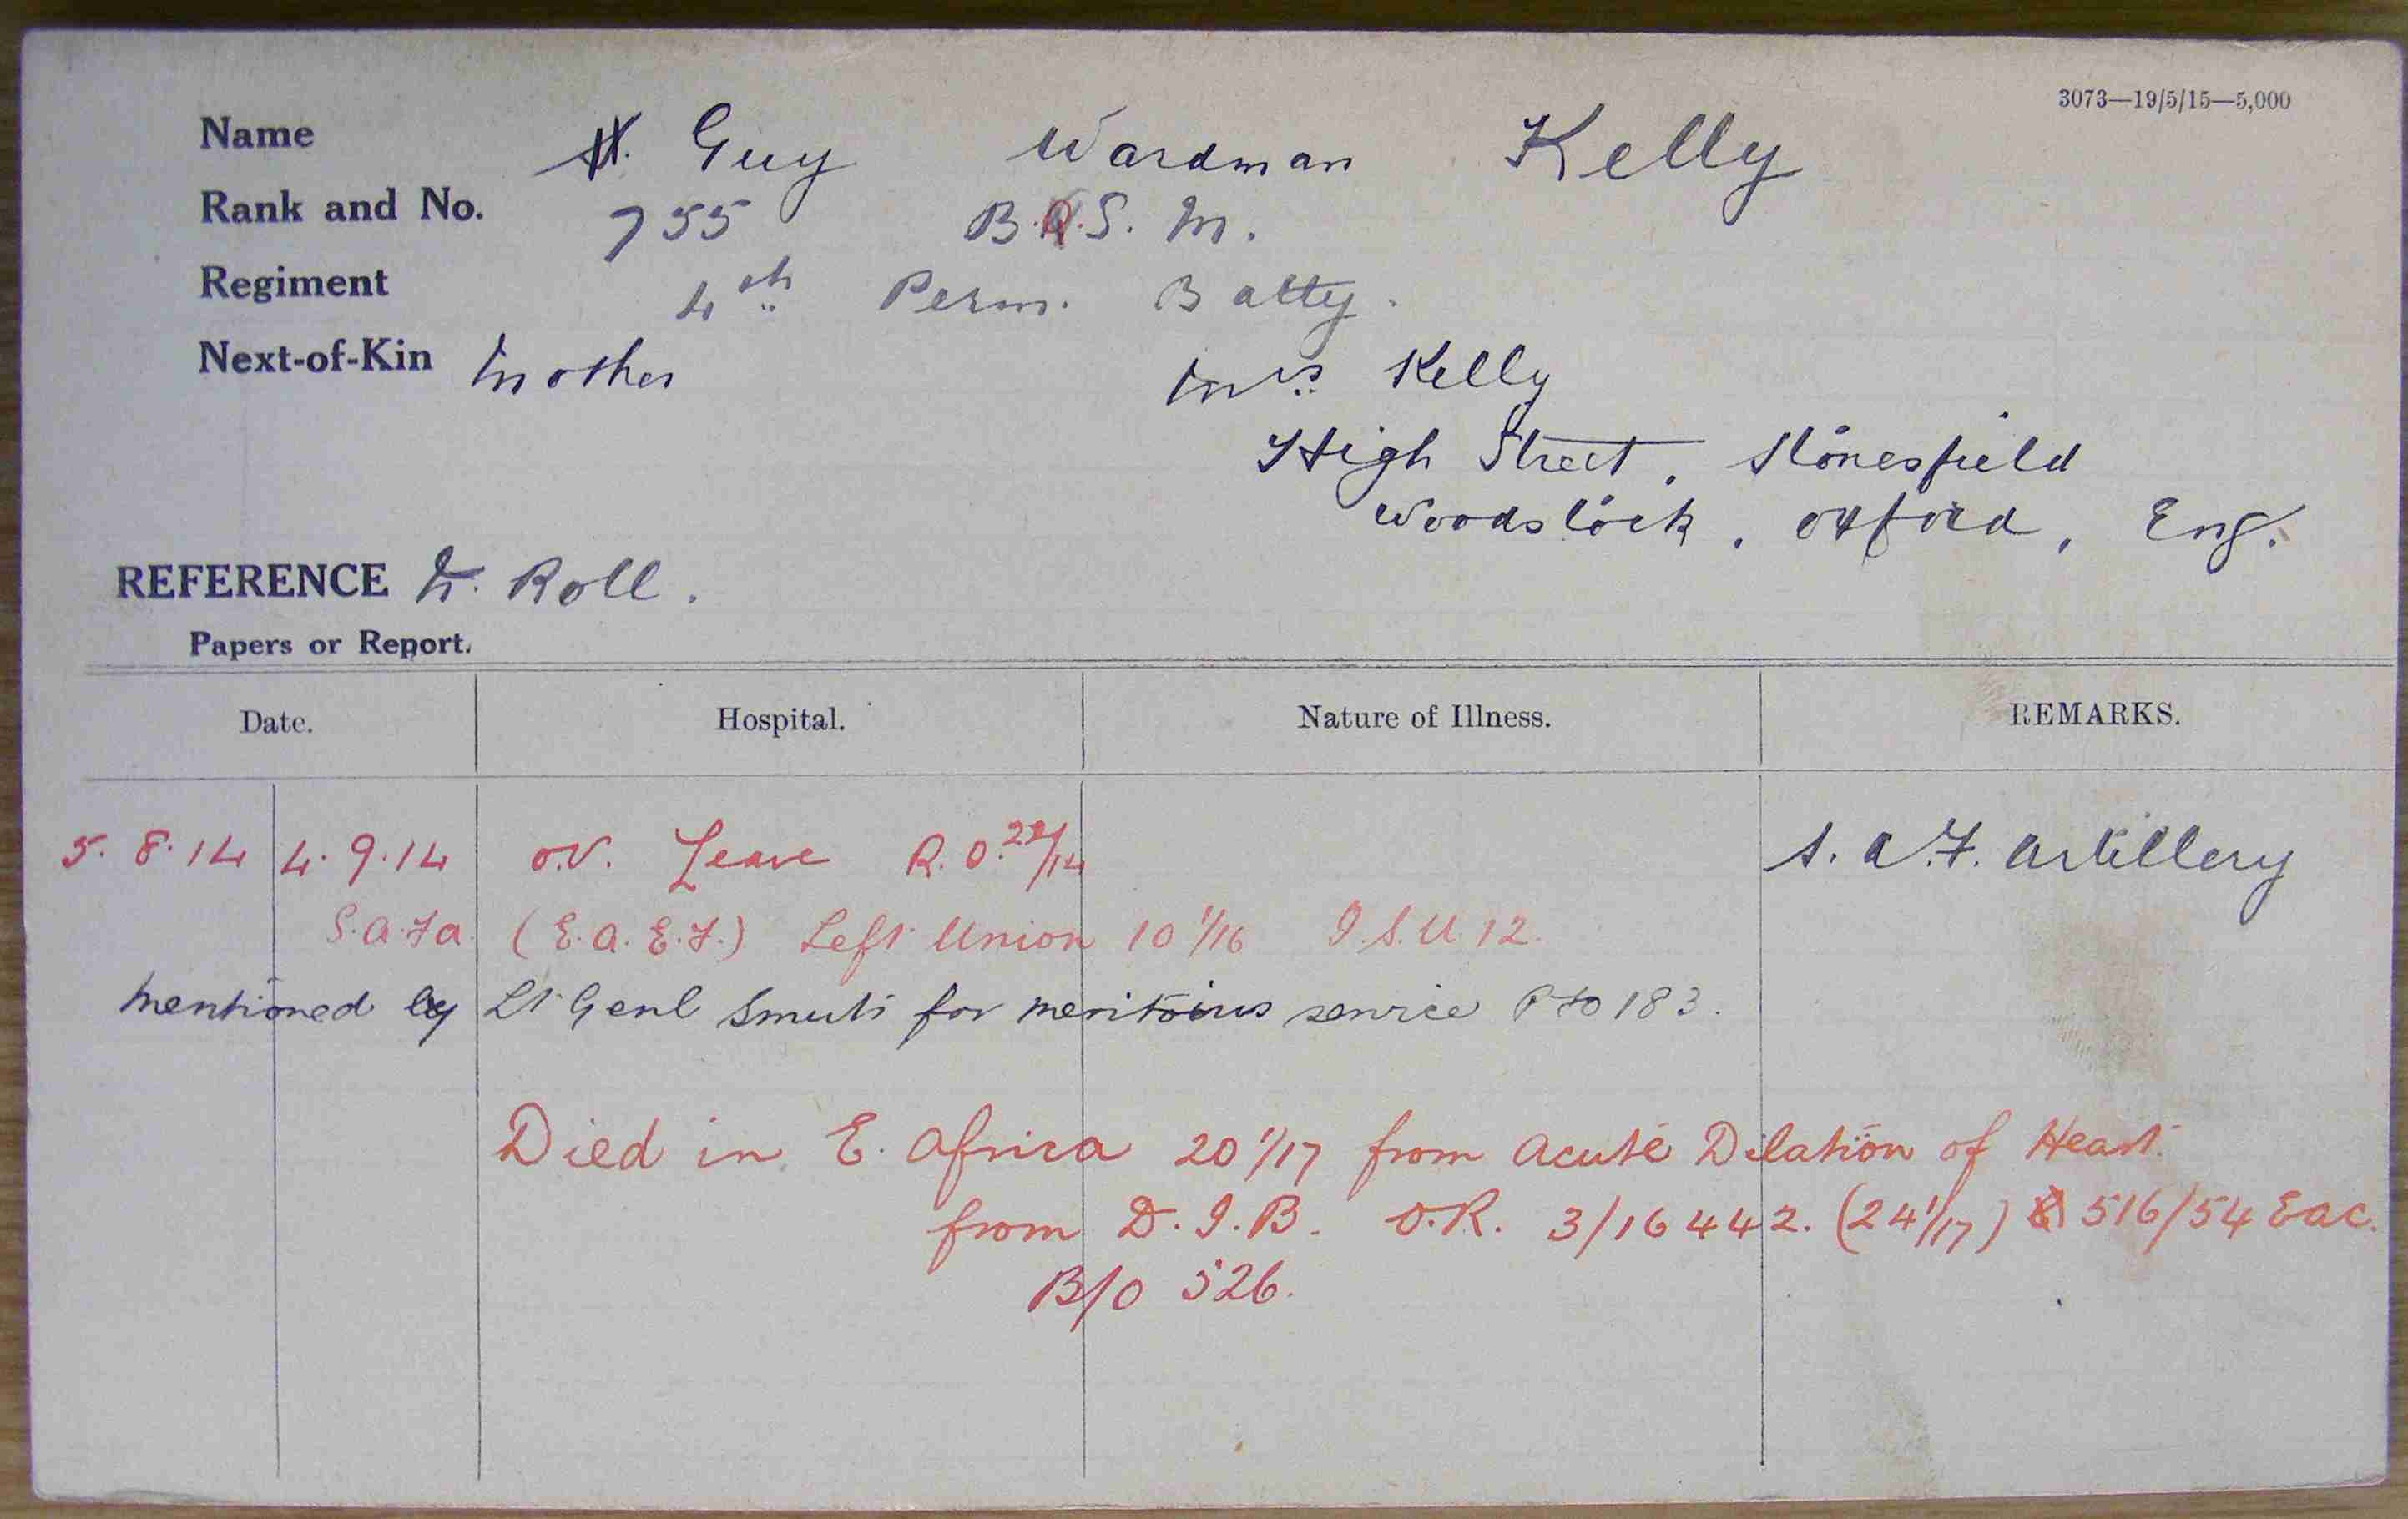 3073—19/5/15—5,000
Name H. Guy Wardman Kelly
Rank and No. 755 B.Q.S.M.
Regiment 4th Perm. Batty.
Next-of-Kin Mother Mrs Kelly
High Street, Stonesfield
Woodstock, Oxford, Eng.
REFERENCE N. Roll.
Papers or Report.
Date. Hospital. Nature of Illness. REMARKS.
5.8.14 4.9.14 O.V. Leave R.O. /14 S.A.F. Artillery
S.A.F.A. (E.A.E.F.) Left Union 10 1/16 I.S.U 12.
Mentioned by Lt Genl Smuts for meritoius service P to 183.
Died in E. Africa 20 1/17 from Acute Dilation of Heart.
from D.I.B. O.R. 3/16442. (24 1/17) 516/54 Eac.
B/O 526.